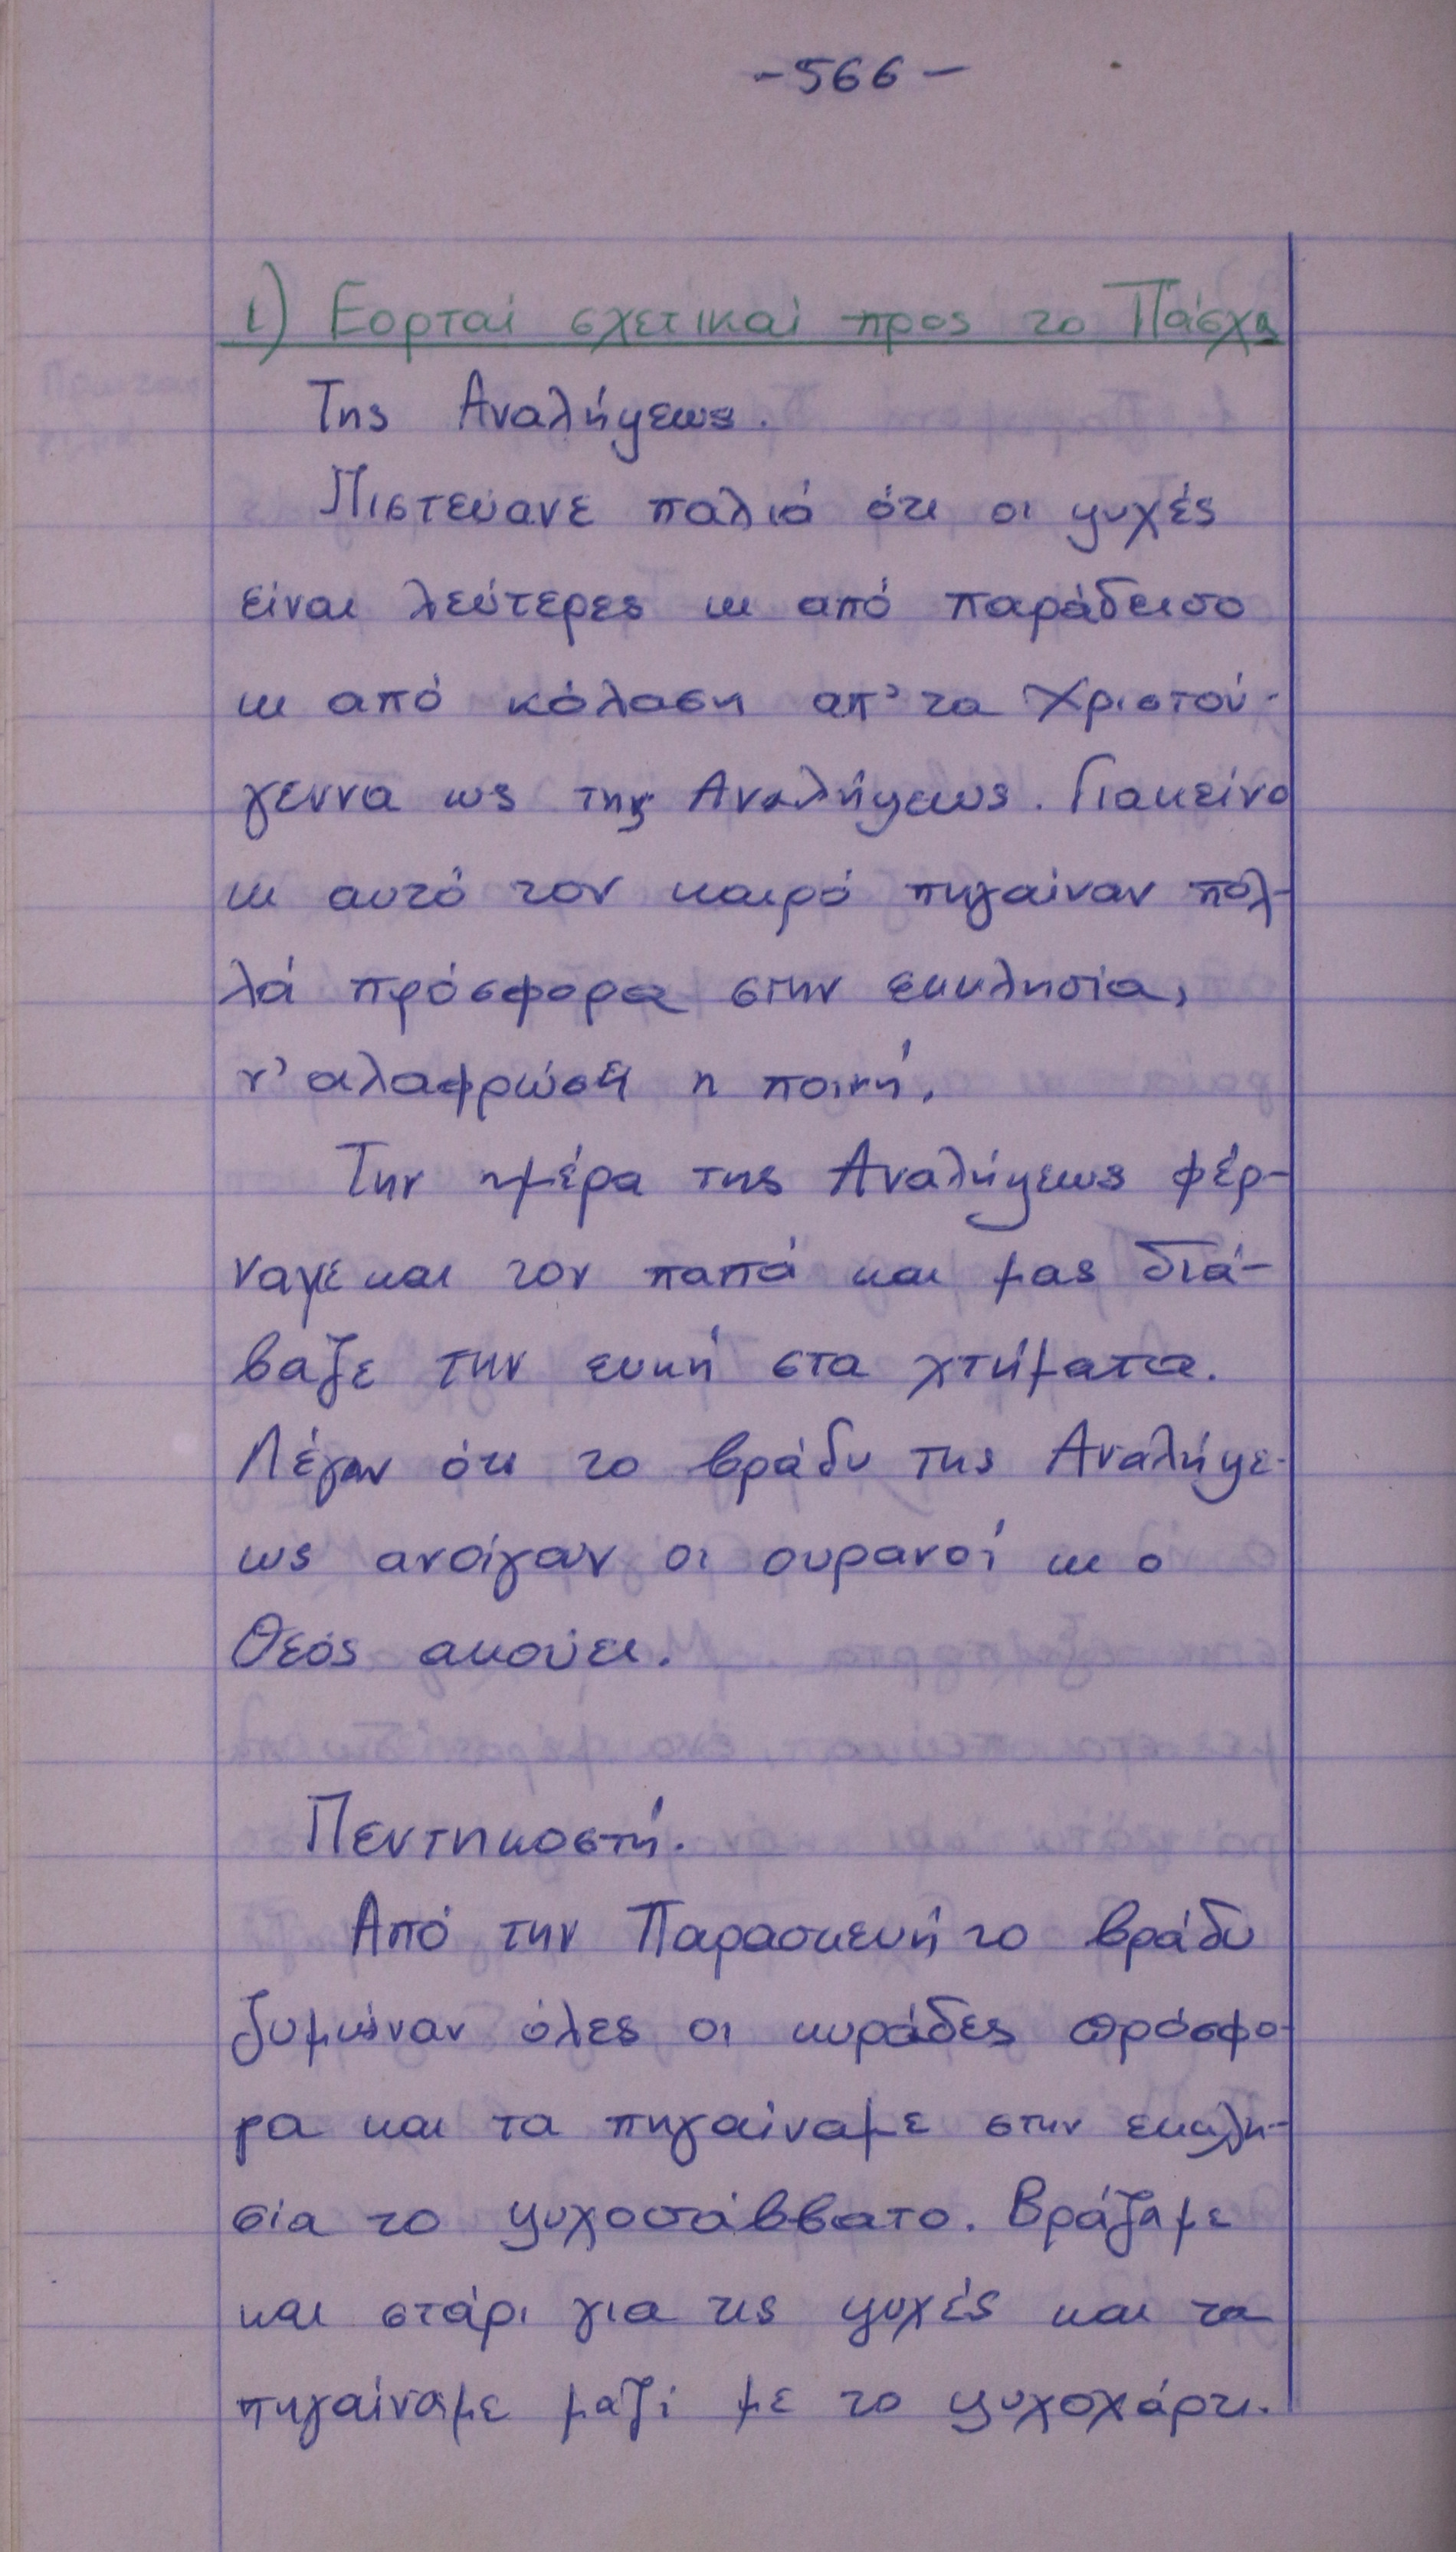 -566-
ι) Εορταί σχετικαί προς το Πάσχα
Της Αναλήψεως.
Πιστεύανε παλιά ότι οι ψυχές
είναι λεύτερες κι από παράδεισο
κι από κόλαση απ' τα Χριστού-
γεννα ως της Αναλήψεως. Γιακείνο
κι αυτό τον καιρό πηγαίναν πολ-
λά πρόσφορα στην εκκλησία,
ν' αλαφρώσει η ποινή.
Την ημέρα της Αναλήψεως φέρ-
ναμε και τον παπά και μας διά-
βαζε την ευκή στα χτήματα.
Λέγαν ότι το βράδυ της Αναλήψε-
ως ανοίγαν οι ουρανοί κι ο
Θεός ακούει.
Πεντηκοστή.
Από την Παρασκευή το βράδυ
ζυμώναν όλες οι κυράδες πρόσφο-
ρα και τα πηγαίναμε στην εκκλη-
σία το ψυχοσάββατο. Βράζαμε
και στάρι για τις ψυχές και τα
πηγαίναμε μαζί με το ψυχοχάρτι.